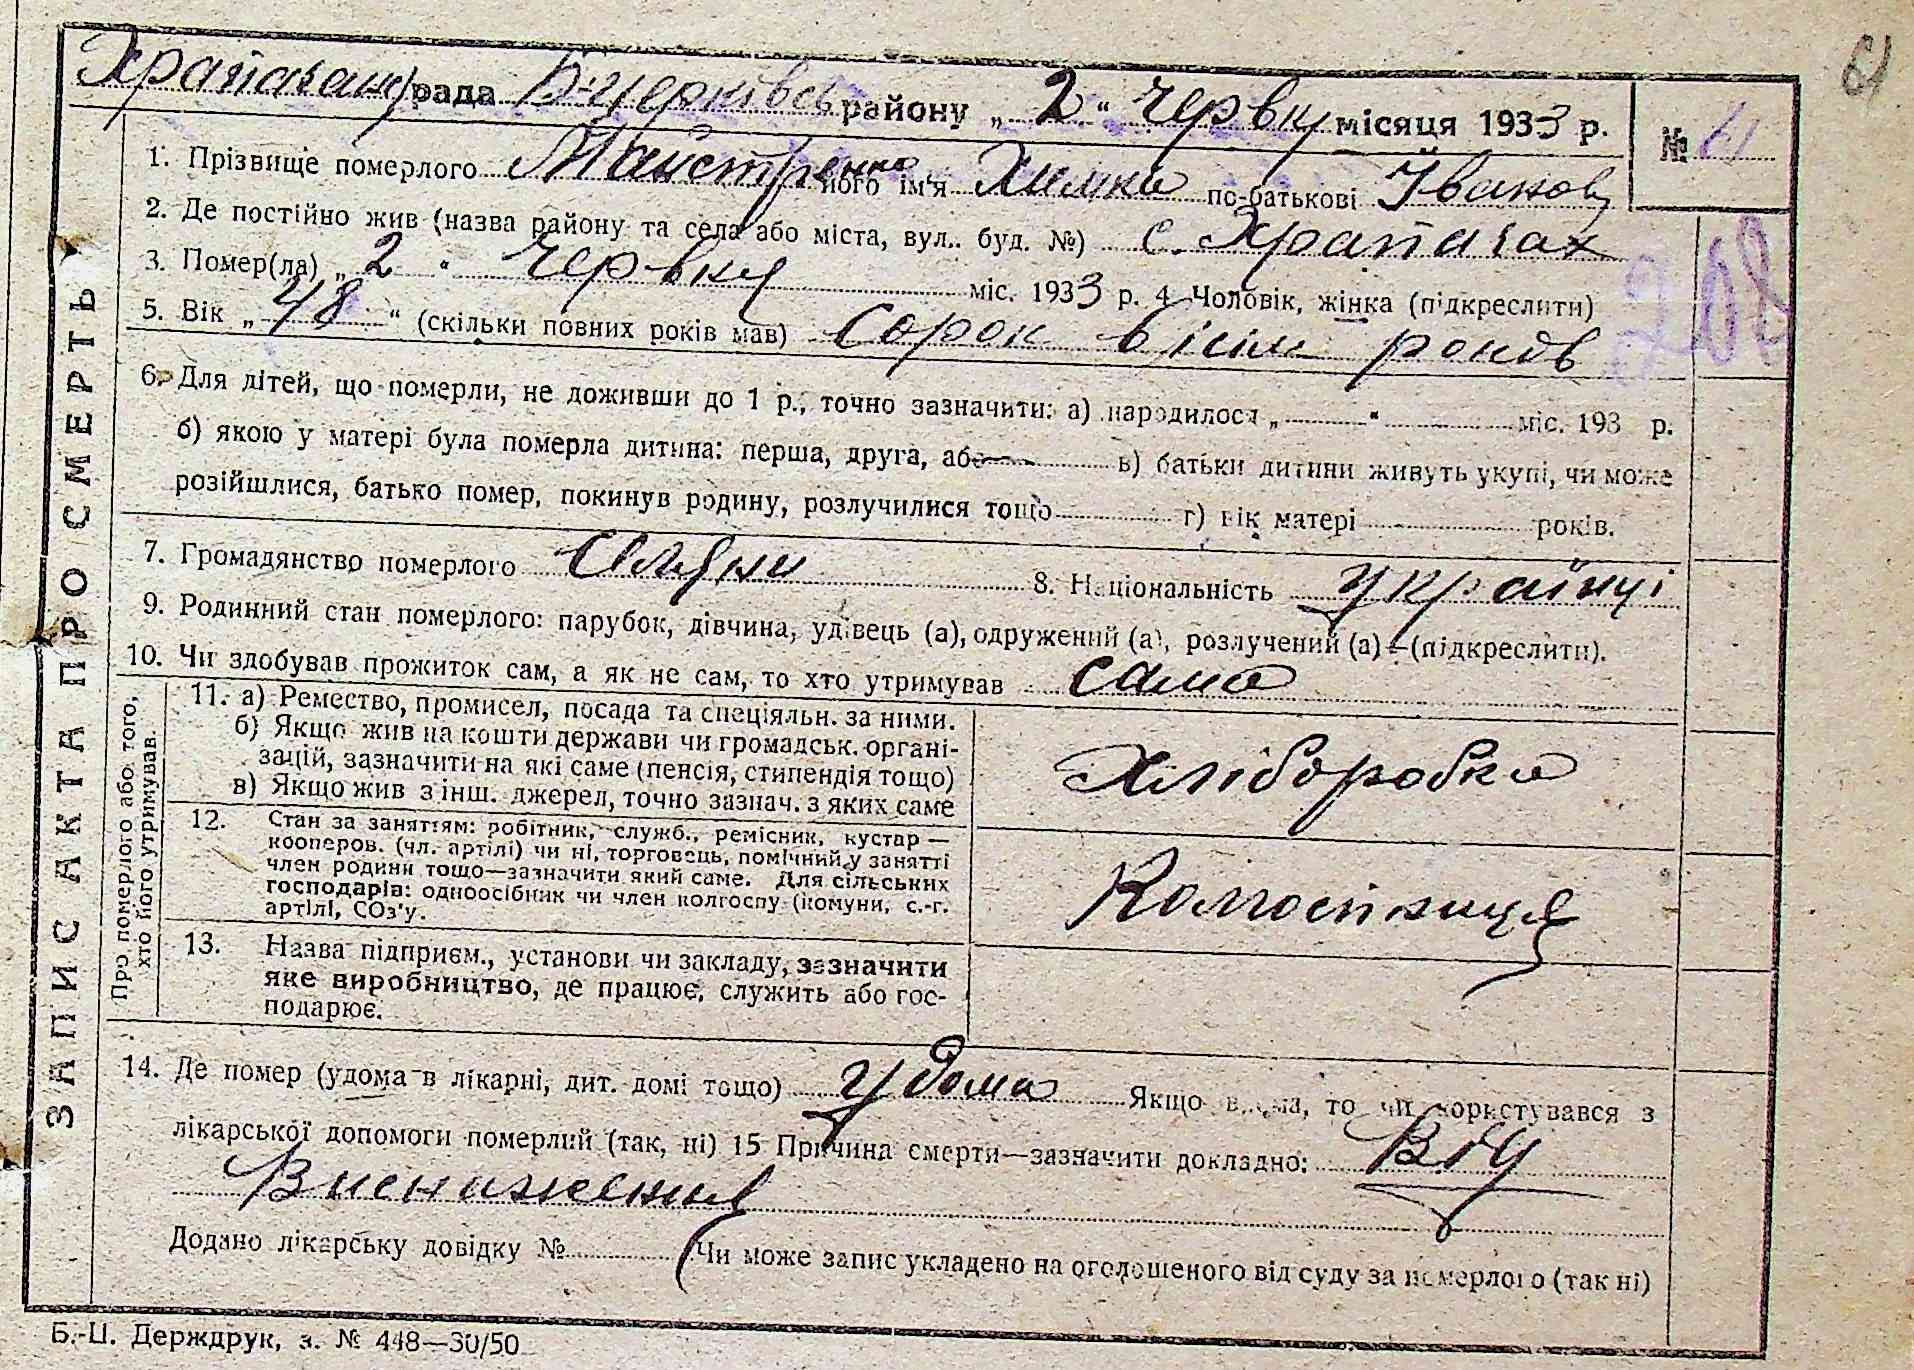 61
Храпачан рада Б-Церківсь району „ 2 “ Червня місяця 1933 р. № 61
1. Прізвище померлого Майстренко його ім'я Химка по-батькові Іванов
2. Де постійно жив (назва району та села або міста, вул.. буд. №) с. Храпачах
3. Помер(ла) „ 2 “ Червня міс. 1933 р. 4 Чоловік, жінка (підкреслити)
5. Вік „ 48 “ (скільки повних років мав) Сорок вісім років
208
6. Для дітей, що померли, не доживши до 1 р., точно зазначити: а) народилося „ “ міс. 193 р.
б) якою у матері була померла дитина: перша, друга, або в) батьки дитини живуть укупі, чи може
розійшлися, батько помер, покинув родину, розлучилися тощо г) вік матері років.
7. Громадянство померлого 8. Національність Українці
9. Родинний стан померлого: парубок, дівчина, удівець (а), одружений (а), розлучений (а) — (підкреслити).
10. Чи здобував прожиток сам, а як не сам, то хто утримував сама
11. а) Ремество, промисел, посада та спеціяльн. за ними.
б) Якщо жив на кошти держави чи громадськ. органі-
зацій, зазначити на які саме (пенсія, стипендія тощо)
в) Якщо жив з інш. джерел, точно зазнач. з яких саме
Хліборобка
12. Стан за заняттям: робітник, служб., ремісник, кустар —
кооперов. (чл. артілі) чи ні, торговець, помічний у занятті
член родини тощо—зазначити який саме. Для сільських
господарів: одноосібник чи член колгоспу (комуни, с.-г.
артілі, СОз'у.
Колгоспниця
13. Назва підприєм., установи чи закладу, зазначити
яке виробництво, де працює, служить або гос-
подарює.
Про померлого або того,
хто його утримував.
14. Де помер (удома в лікарні, дит. домі тощо) удома Якщо вдома, то чи користувався з
лікарської допомоги померлий (так, ні) 15 Причина смерти—зазначити докладно: Від
Виснаження
Додано лікарську довідку № (Чи може запис укладено на оголошеного від суду за померлого (так ні)
ЗАПИС АКТА ПРО СМЕРТЬ
Б.-Ц. Держдрук, з. № 448—30/50